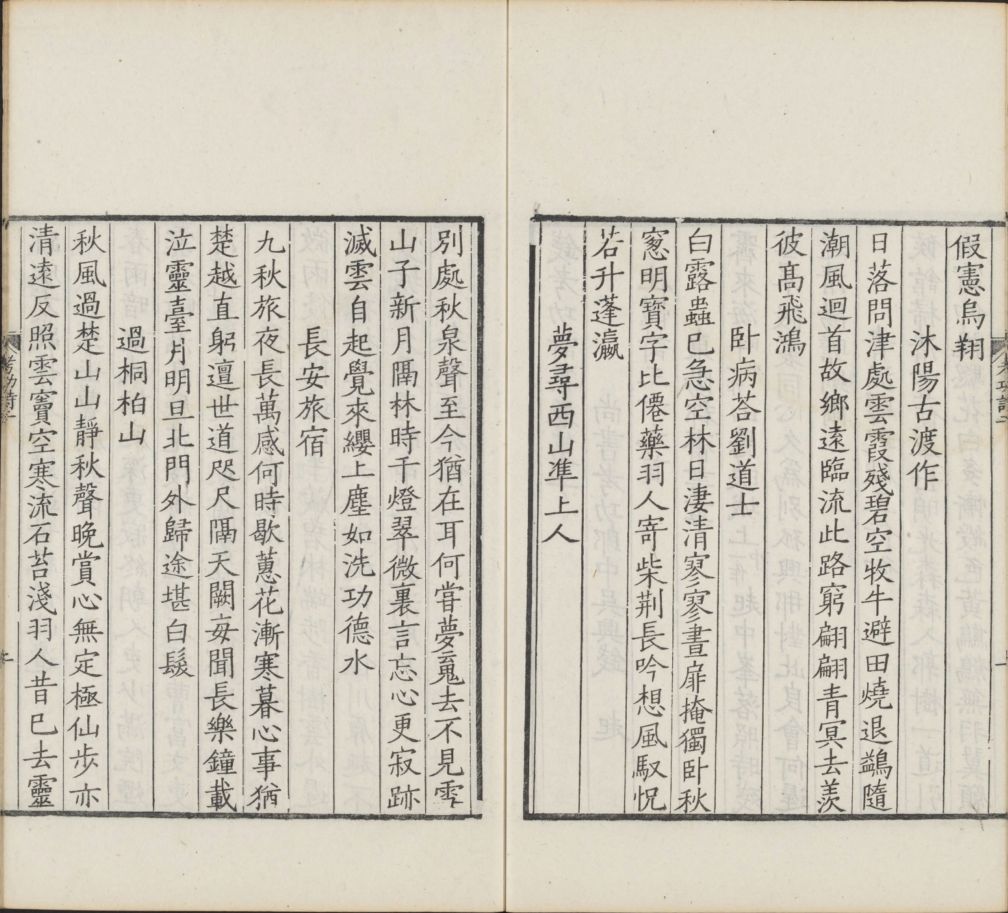 假憲烏翔
沐陽古渡作
日落問津處雲霞殘碧空牧牛避田燒退鷁隨
潮風迴首故鄉遠臨流此路窮翩翩青冥去羨
彼髙飛鴻
卧病荅劉道士
白露蟲已急空林日淒清寥寥晝扉掩獨卧秋
窻明寶字比僊藥羽人寄柴荆長吟想風馭怳
若升蓬瀛
夢尋西山準上人
別處秋泉聲至今猶在耳何嘗夢䰟去不見雪
山子新月隔林時千燈翠微裏言忘心更寂跡
滅雲自起覺來纓上塵如洗功德水
長安旅宿
九秋旅夜長萬感何時歇蕙花漸寒暮心事猶
楚越直躬邅世道咫尺隔天闕每聞長樂鐘載
泣靈臺月明旦北門外歸途堪白髮
過桐柏山
秋風過楚山山靜秋聲晚賞心無定極仙步亦
清遠反照雲竇空寒流石苔淺羽人昔已去靈
考功詩